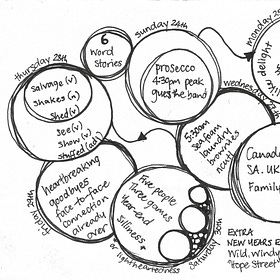 6
Word
Stories
thursday 28th
Salvage (v)
Shakes (n)
Shed (v)
See (v)
Show (v)
Stuffed (adj)
sunday 24th
prosecco
4:30pm peak
guess the band
monday 25
delight
wednesday
5:30am
seafoam
laundry
brownies
next!
Canada
SA. UK
Family
friday 29th
heartbreaking
goodbyes
face-to-face
connection
already
over
saturday 30th
Five people
Three games
Year-end
Silliness
or lightheartedness
EXTRA
NEW YEARS E
Wild, Windy
"Hope Street